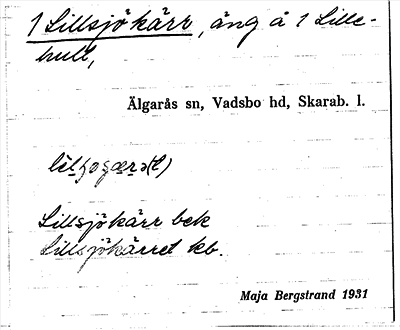 1 Lillsjökärr, äng å 1 Lille-
hult,
Älgarås sn, Vadsbo hd, Skarab. l.
Lillsjökärr bek
Lillsjökärret kb.
Maja Bergstrand 1931